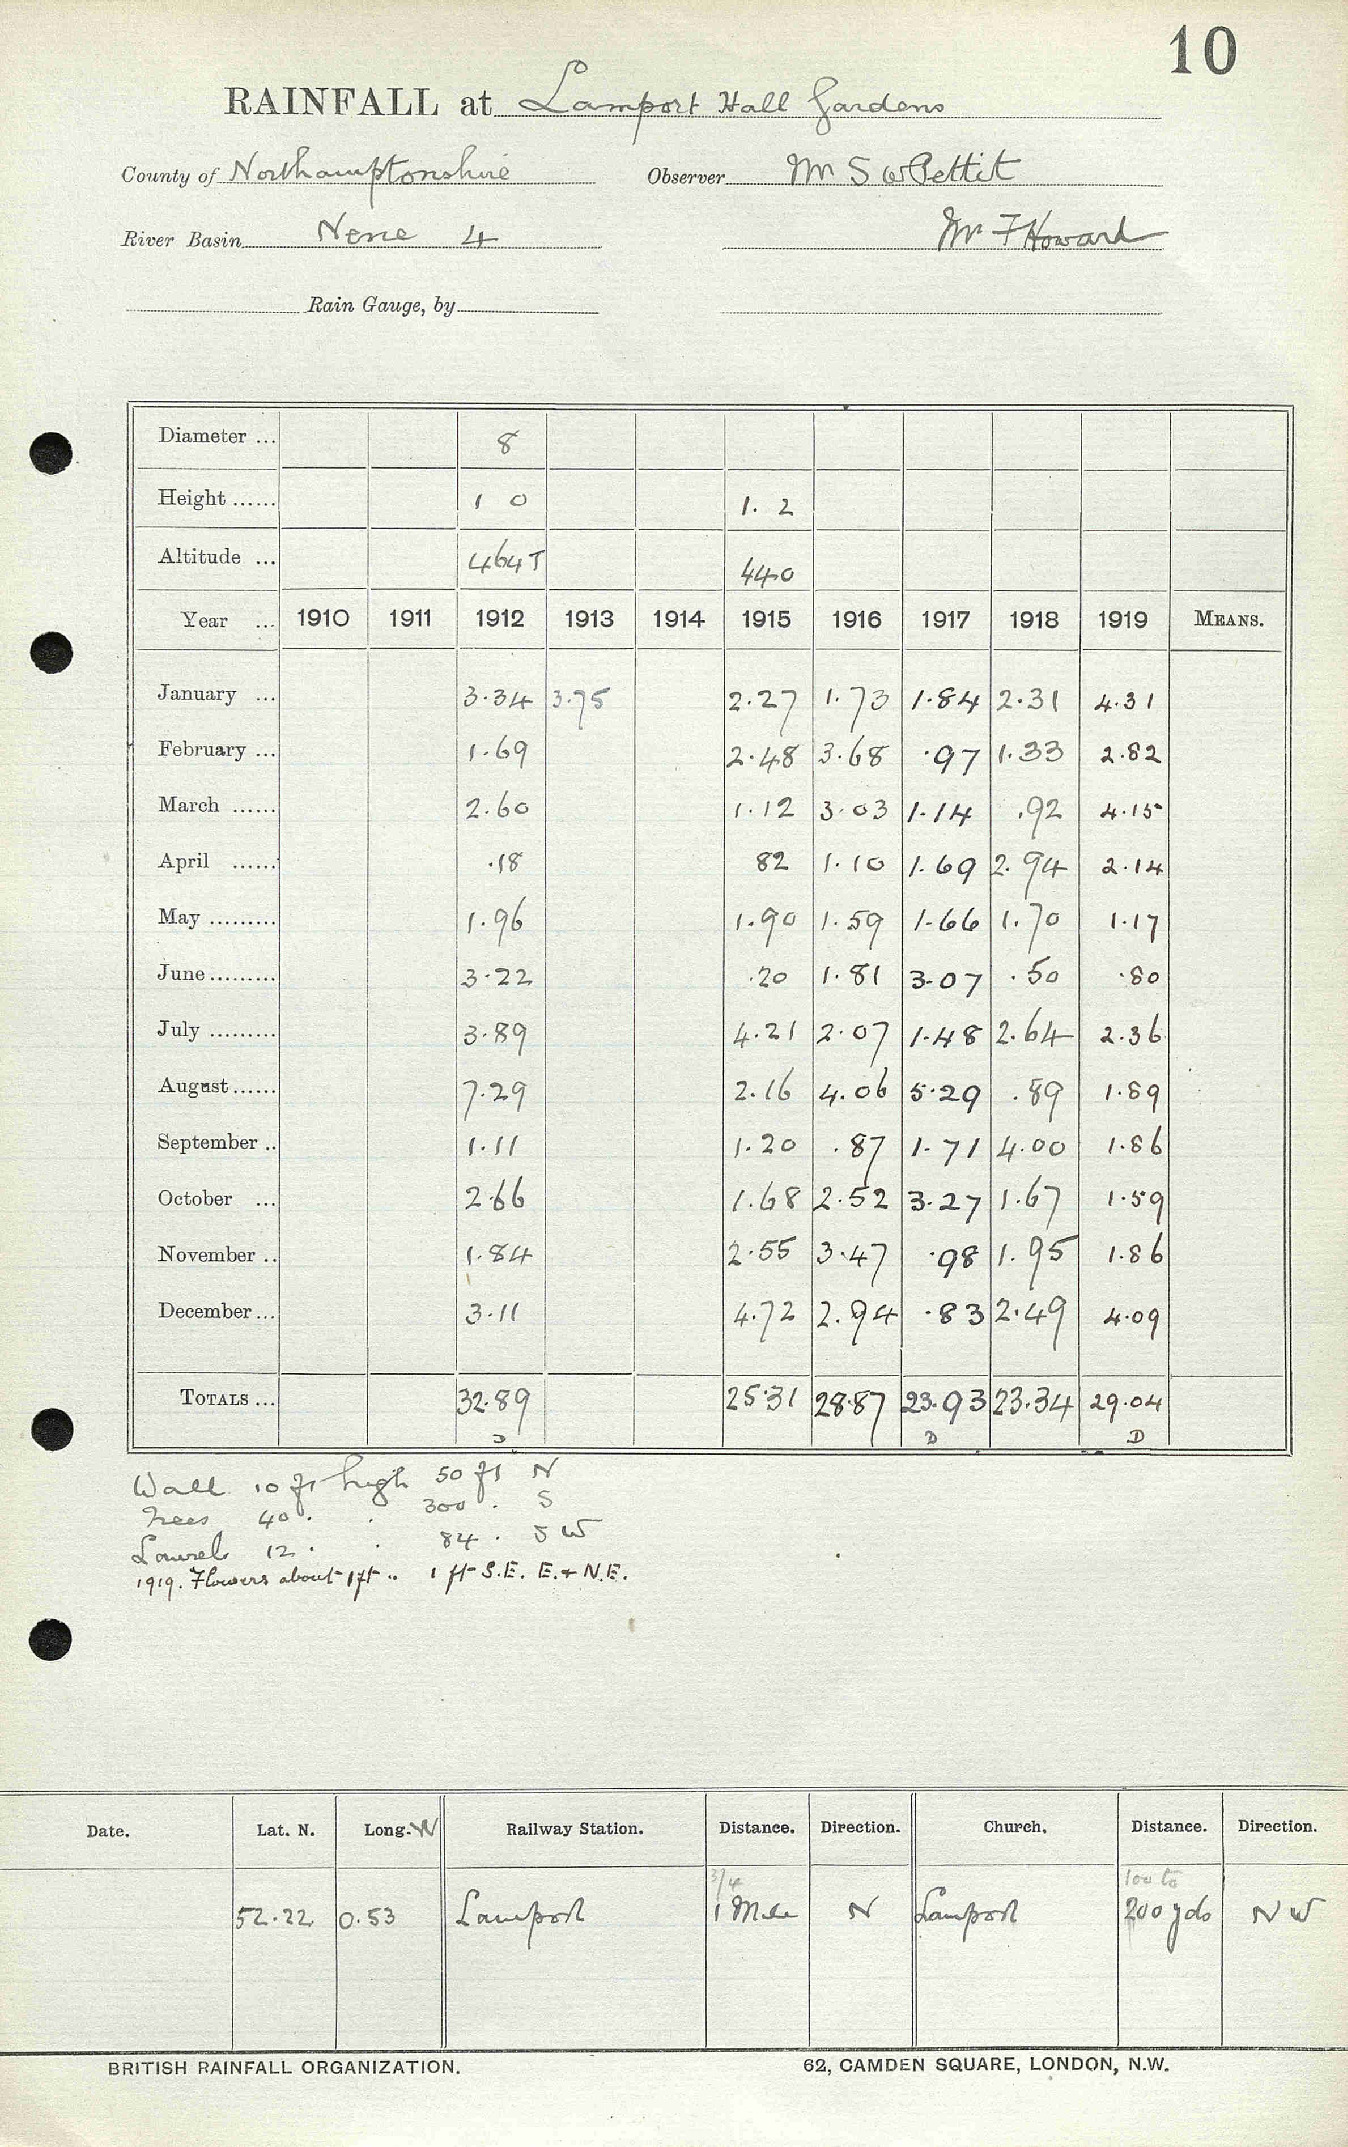 10
RAINFALL at Lamport Hall Gardens
County of Northamptonshire Observer Mr S W Pettit
River Basin Nene 4 Mr F Howard
Rain Gauge, by
Diameter ... 8
Height ...... 1 0 1. 2
Altitude ... 464T 440
Year ... 1910 1911 1912 1913 1914 1915 1916 1917 1918 1919 MEANS.
January ... 3.34 3.75 2.27 1.73 1.84 2.31 4.31
February ... 1.69 2.48 3.68 .97 1.33 2.82
March ...... 2.60 1.12 3.03 1.14 .92 4.15
April ...... .18 82 1.10 1.69 2.94 2.14
May ......... 1.96 1.90 1.59 1.66 1.70 1.17
June ......... 3.22 .20 1.81 3.07 .50 .80
July ......... 3.89 4.21 2.07 1.48 2.64 2.36
August ...... 7.29 2.16 4.06 5.29 .89 1.89
September .. 1.11 1.20 .87 1.71 4.00 1.86
October ... 2.66 1.68 2.52 3.27 1.67 1.59
November .. 1.84 2.55 3.47 .98 1.95 1.86
December ... 3.11 4.72 2.94 .83 2.49 4.09
TOTALS ... 32.89 25.31 28.87 23.93 23.34 29.04
D D D
Wall 10 ft high 50 ft N
Trees 40 . . 300 . S
Laurels 12 . . 84 . S W
1919. Flowers about 1 ft .. 1 ft S.E. E. + N.E.
Date. Lat. N. Long. W Railway Station. Distance. Direction. Church. Distance. Direction.
3/4 100 to
52.22 0.53 Lamport 1 Mile N Lamport 200 yds N W
BRITISH RAINFALL ORGANIZATION. 62, CAMDEN SQUARE, LONDON, N.W.